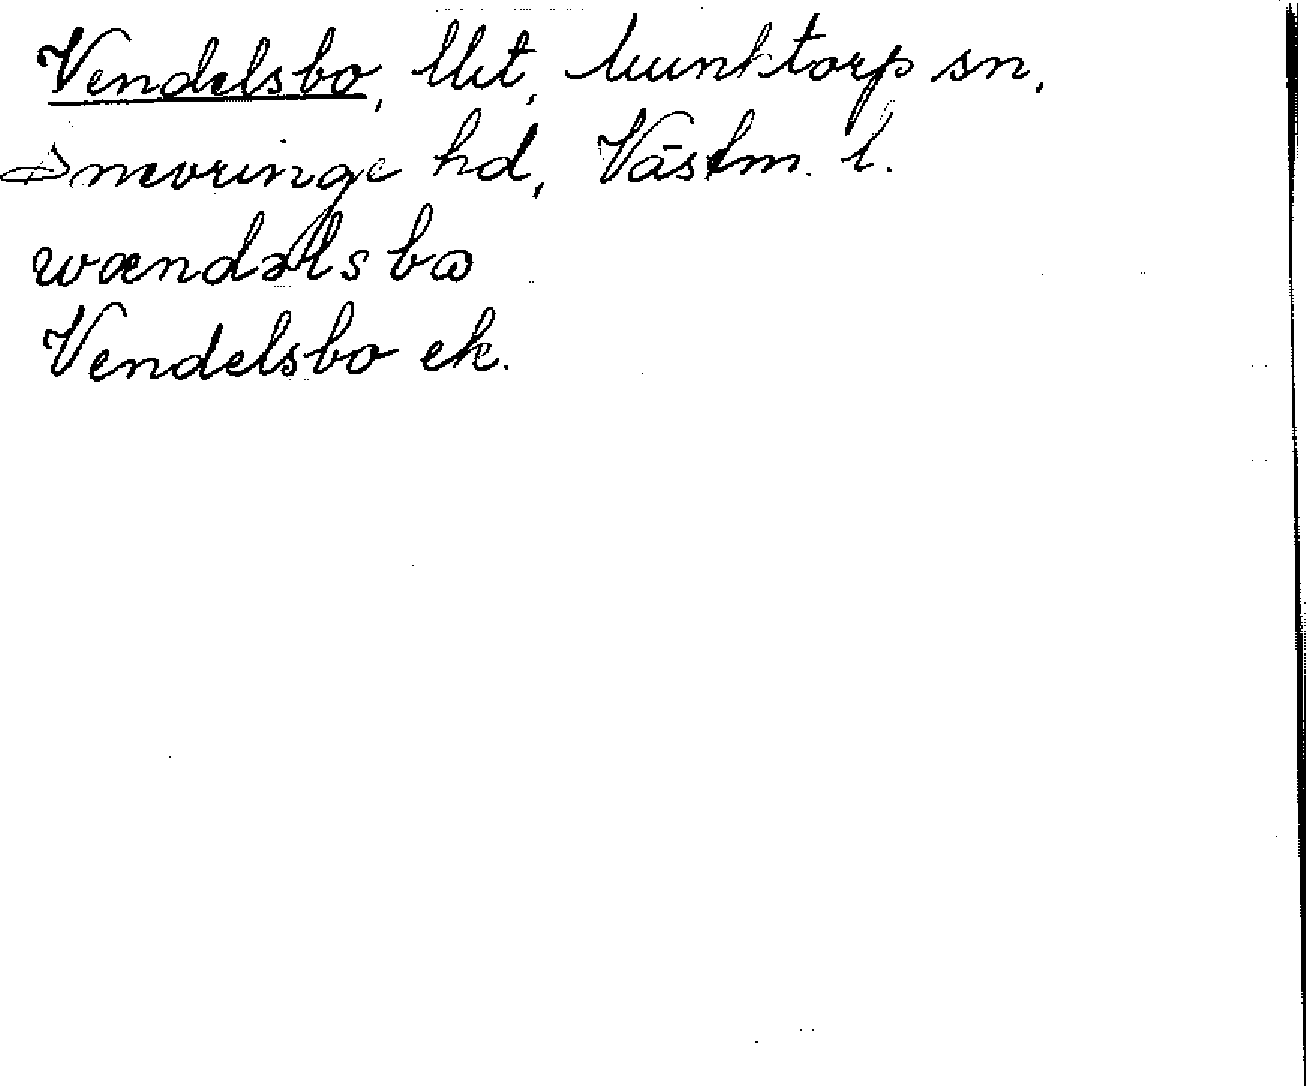 Vendelsbo, llit, Munktorp sn,
Snevringe hd, Västm. l.
wændəlsbω
Vendelsbo ek.